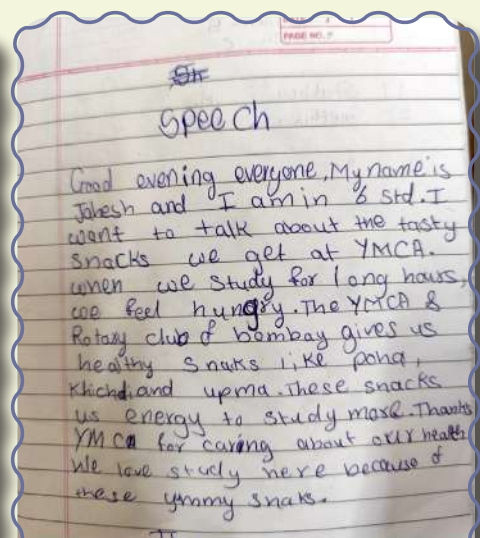 PAGE NO.
Speech
Good evening everyone. My name is
Jahesh and I am in 6 std. I
want to talk about the tasty
snacks we get at YMCA.
when we study for long hours,
we feel hungry. The YMCA &
Rotary club of bombay gives us
healthy snaks like poha,
Khichdi and upma. These snacks
us energy to study more. Thanks
YMCA for caring about our health
We love study here because of
these yummy snaks.